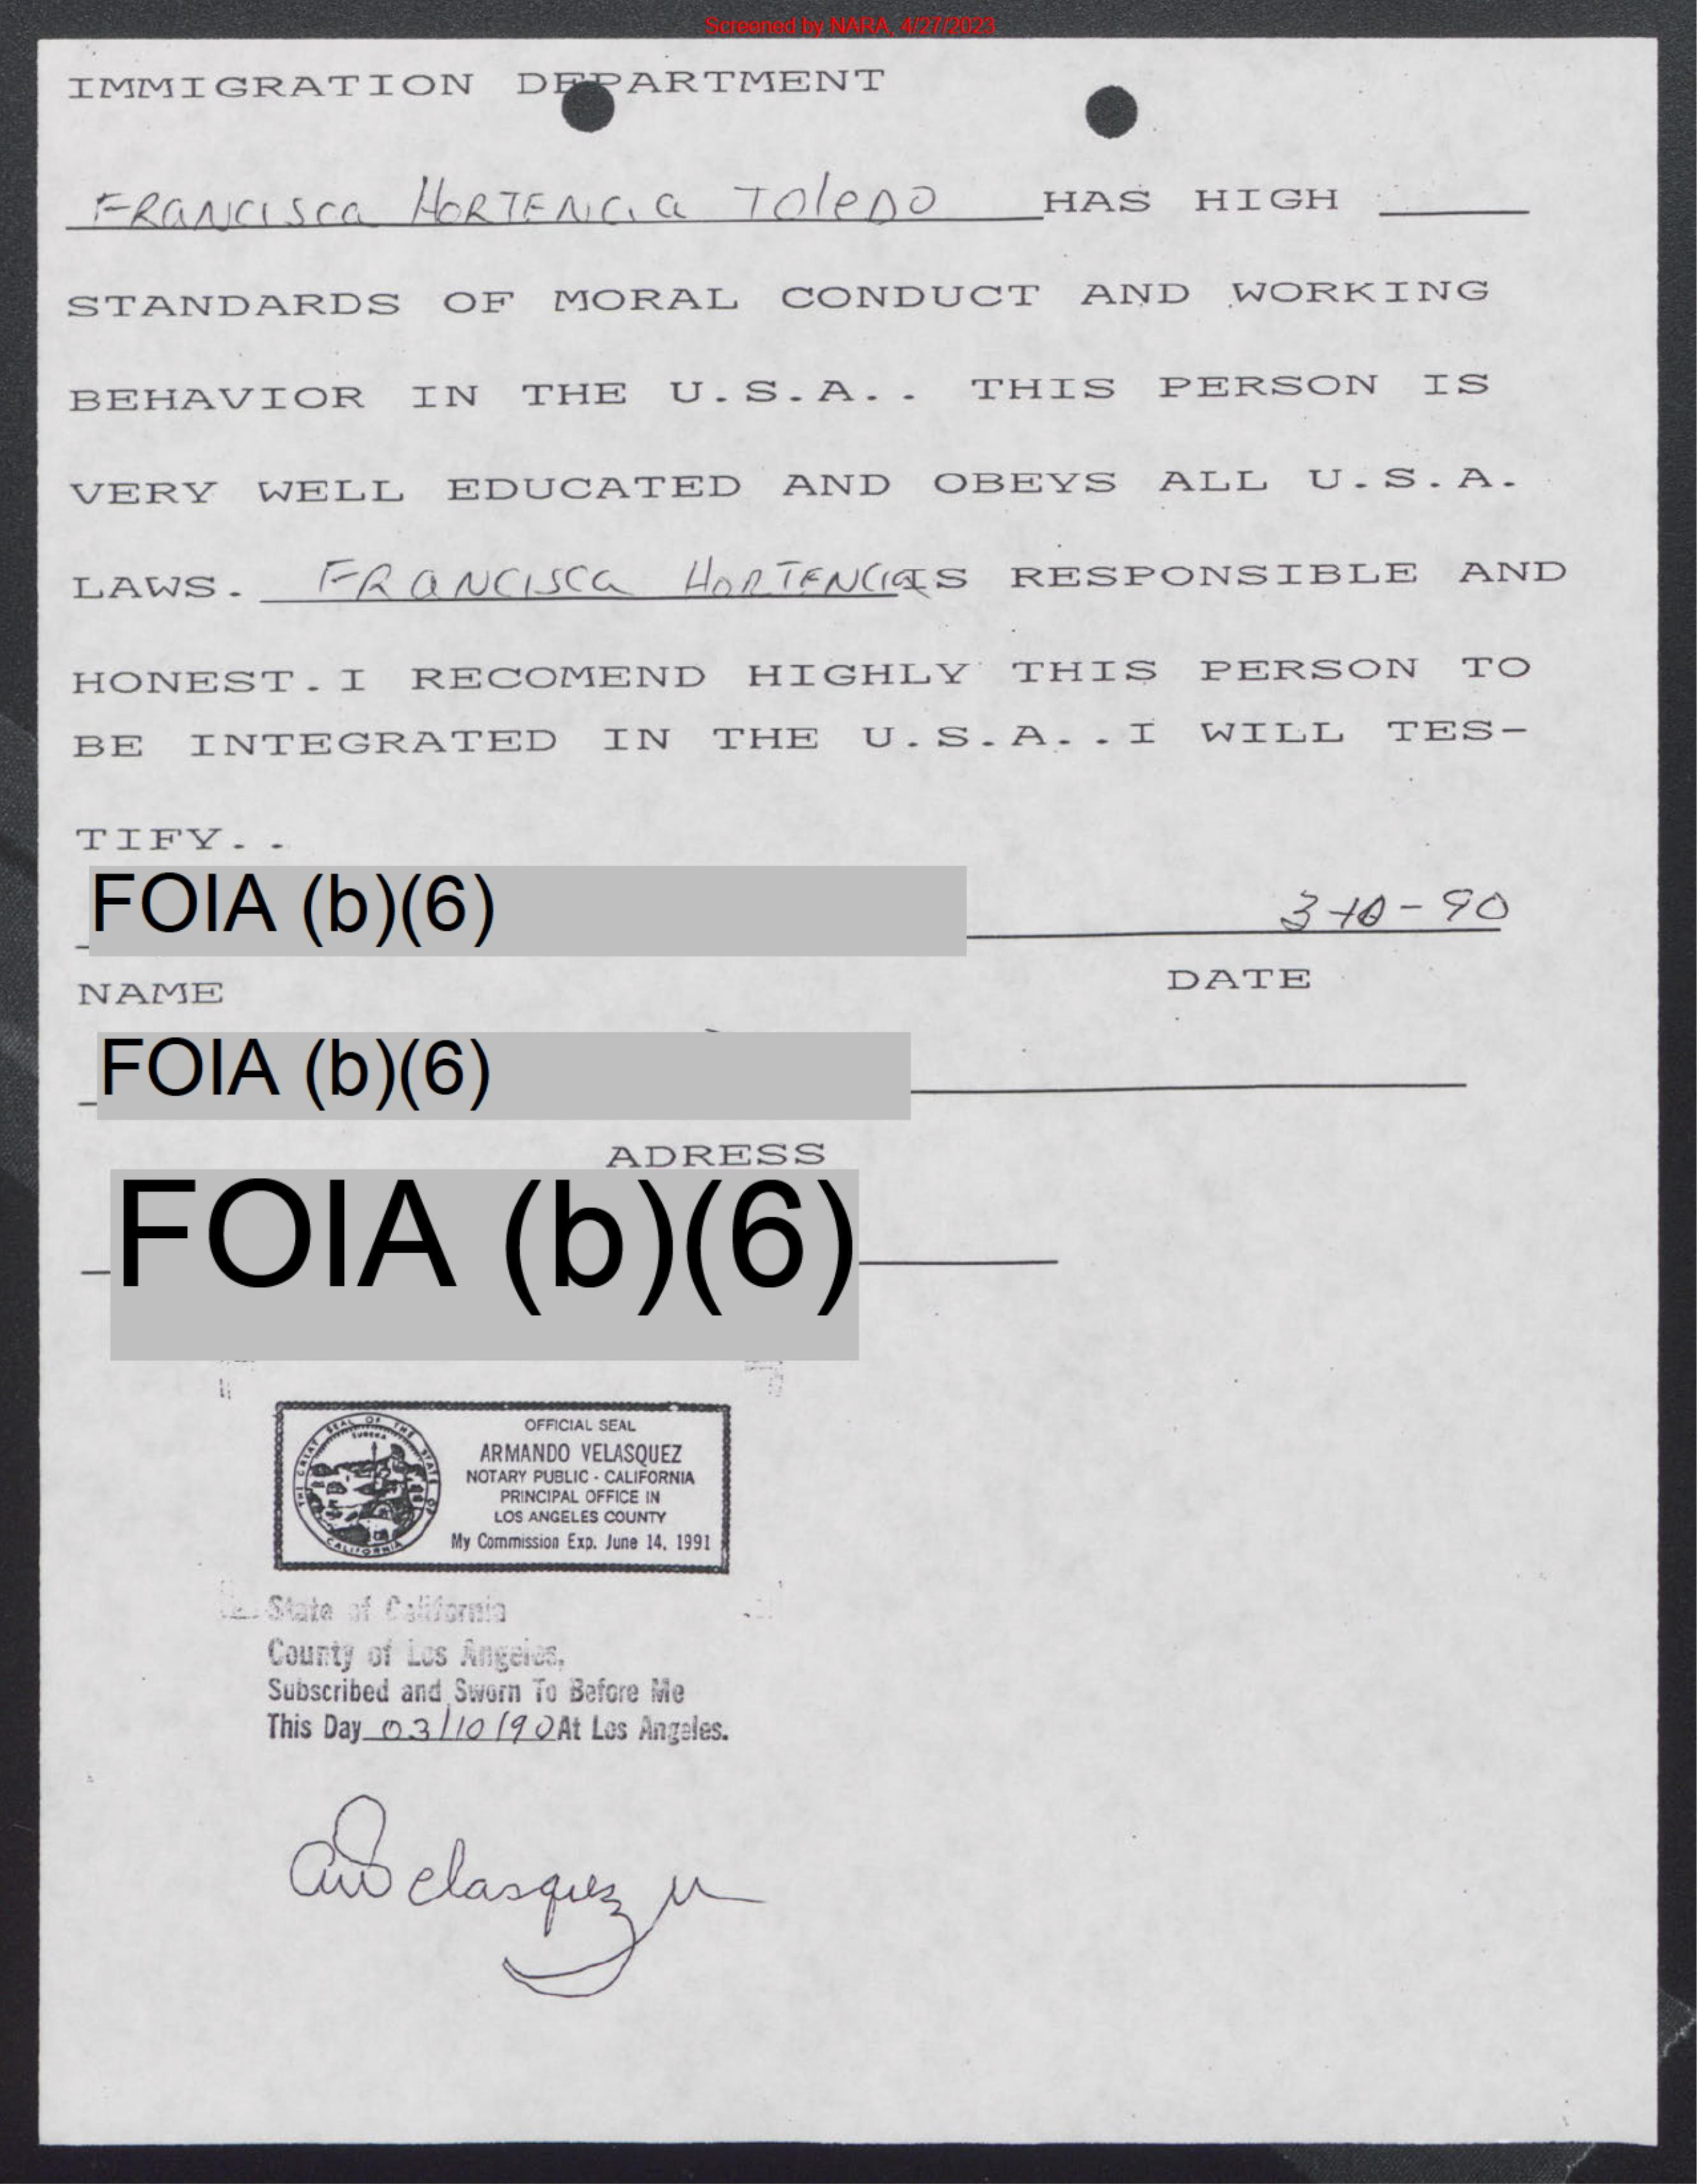 Screened by NARA, 4/27/2023
IMMIGRATION DEPARTMENT
FRANCISCA HORTENCIA TOLEDO HAS HIGH
STANDARDS OF MORAL CONDUCT AND WORKING
BEHAVIOR IN THE U.S.A.. THIS PERSON IS
VERY WELL EDUCATED AND OBEYS ALL U.S.A.
LAWS. FRANCISCA HORTENCIA IS RESPONSIBLE AND
HONEST.I RECOMEND HIGHLY THIS PERSON TO
BE INTEGRATED IN THE U.S.A..I WILL TES-
TIFY..
FOIA (b)(6) 3-10-90
NAME DATE
FOIA (b)(6)
ADRESS
FOIA (b)(6)
THE GREAT SEAL OF THE STATE OF CALIFORNIA
EUREKA
OFFICIAL SEAL
ARMANDO VELASQUEZ
NOTARY PUBLIC - CALIFORNIA
PRINCIPAL OFFICE IN
LOS ANGELES COUNTY
My Commission Exp. June 14, 1991
State of California
County of Los Angeles,
Subscribed and Sworn To Before Me
This Day 03/10/90 At Los Angeles.
Velasquez